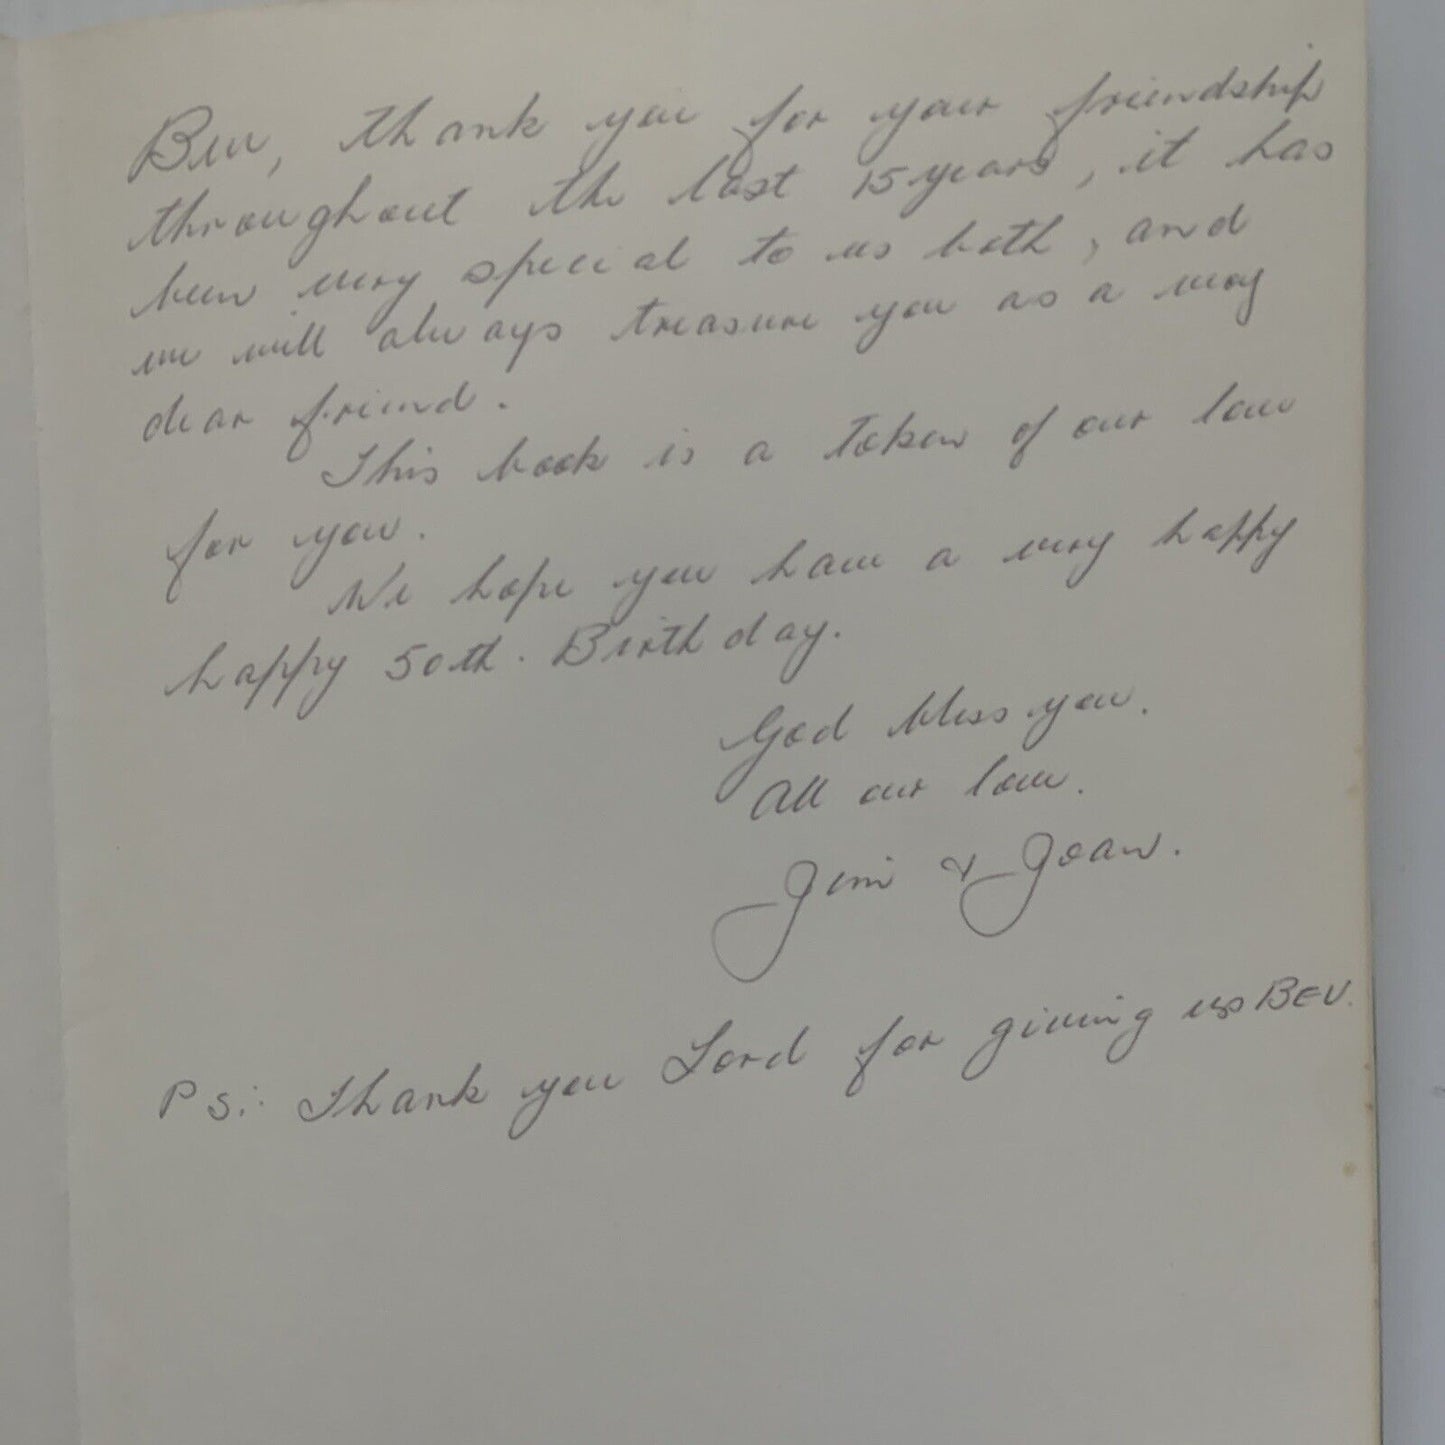 Bev, thank you for your friendship
throughout the last 15 years, it has
been very special to us both, and
we will always treasure you as a very
dear friend.
This book is a token of our love
for you.
We hope you have a very happy
happy 50th. Birthday.
God bless you.
All our love.
Jim & Joan.
PS:. Thank you Lord for giving us BEV.